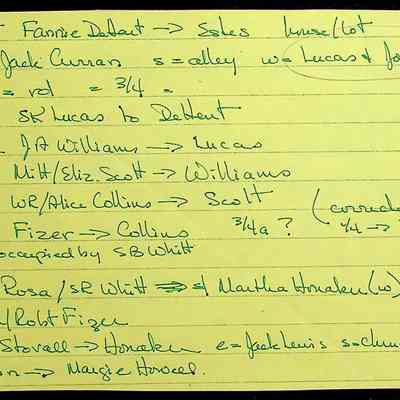 Fannie DeHart -> Sales house/lot
Jack Curran s = alley w = Lucas & Jo
= rd = 3/4 =
SK Lucas to DeHart
JA Williams -> Lucas
Milt/Eliz. Scott -> Williams
WR/Alice Collins -> Scott (corrected
Fizer -> Collins 3/4a ? 1/4 ->
occupied by SB Whitt
Rosa/SR Whitt => Martha Honaker (w)
/Robt Fizer
Stovall -> Honaker e = Jack Lewis s = chur
on -> Margie Howard.